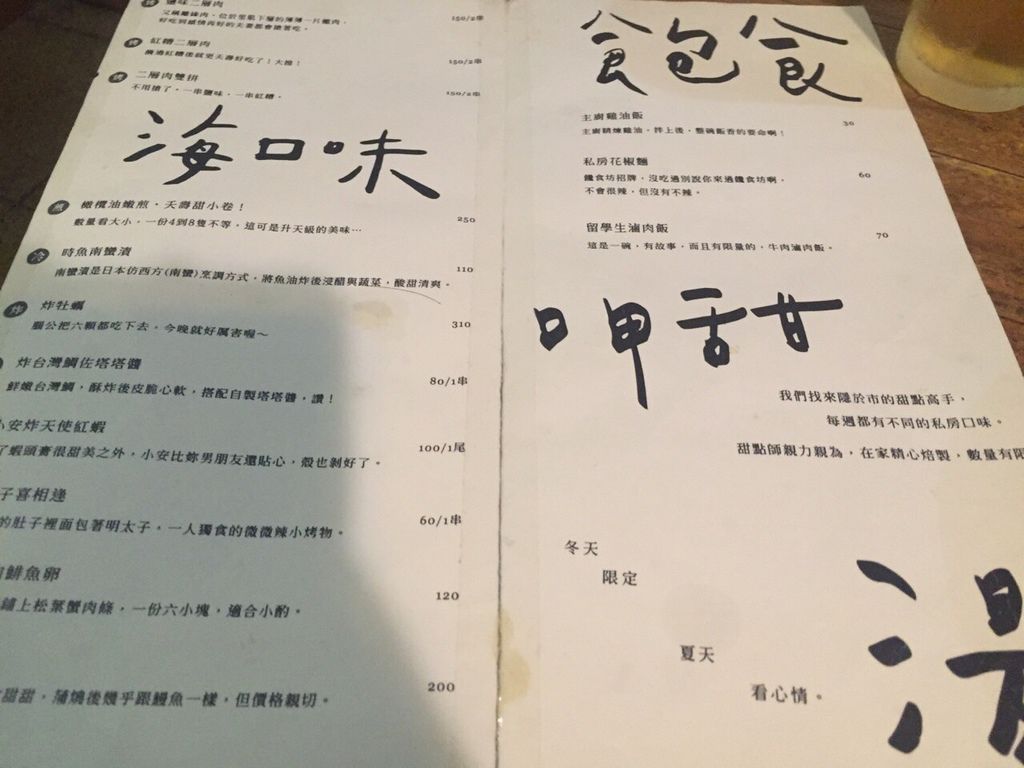 鹽味二層肉
又稱離緣肉，位於里肌下層的薄薄一片瘦肉，
好吃到感情再好的夫妻都會搶著吃。
150/2串
烤 紅糟二層肉
醃過紅糟後就更夭壽好吃了！大推！
150/2串
烤 二層肉雙拼
不用搶了，一串鹽味，一串紅糟。
150/2串
海口味
橄欖油嫩煎，夭壽甜小卷！
數量看大小，一份4到8隻不等，這可是升天級的美味…
250
冷 時魚南蠻漬
南蠻漬是日本仿西方(南蠻)烹調方式，將魚油炸後浸醋與蔬菜，酸甜清爽。
110
炸 炸牡蠣
腦公把六顆都吃下去，今晚就好厲害喔～
310
炸台灣鯛佐塔塔醬
鮮嫩台灣鯛，酥炸後皮脆心軟，搭配自製塔塔醬，讚！
80/1串
小安炸天使紅蝦
了蝦頭膏很甜美之外，小安比妳男朋友還貼心，殼也剝好了。
100/1尾
子喜相逢
的肚子裡面包著明太子，一人獨食的微微辣小烤物。
60/1串
鯡魚卵
鋪上松葉蟹肉條，一份六小塊，適合小酌。
120
甜甜，蒲燒後幾乎跟鰻魚一樣，但價格親切。
200
食包食
主廚雞油飯
主廚精煉雞油，拌上後，整碗飯香的要命啊！
30
私房花椒麵
饞食坊招牌，沒吃過別說你來過饞食坊啊。
不會很辣，但沒有不辣。
60
留學生滷肉飯
這是一碗，有故事，而且有限量的，牛肉滷肉飯。
70
呷甜甘
我們找來隱於市的甜點高手，
每週都有不同的私房口味。
甜點師親力親為，在家精心焙製，數量有限
冬天
限定
夏天
看心情。
湯